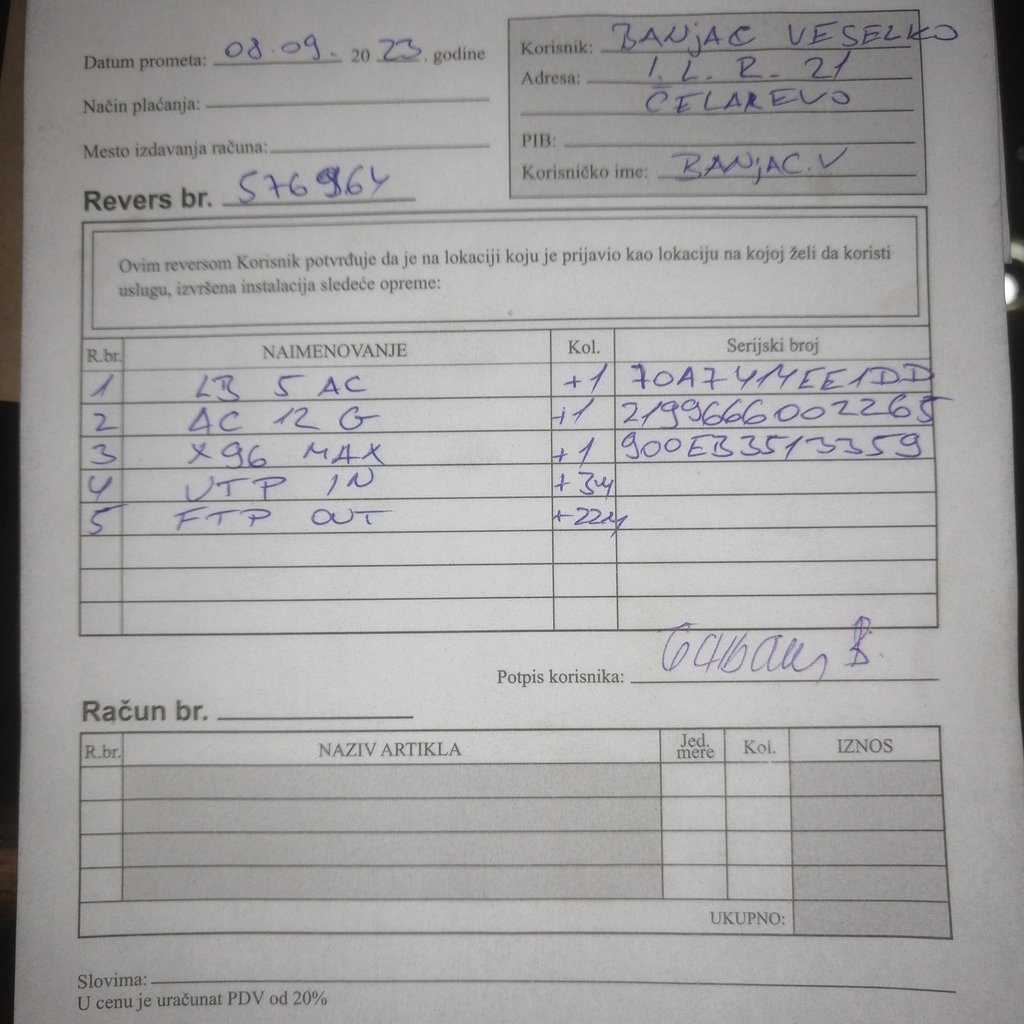 Datum prometa: 08.09. 2023. godine
Način plaćanja:
Mesto izdavanja računa:
Revers br. 576964
Korisnik: BANjAC VESELKO
Adresa: I. L. R. 21
ČELAREVO
PIB:
Korisničko ime: BANjAC.V
Ovim reversom Korisnik potvrđuje da je na lokaciji koju je prijavio kao lokaciju na kojoj želi da koristi
uslugu, izvršena instalacija sledeće opreme:
R.br. NAIMENOVANJE Kol. Serijski broj
1 LB 5 AC +1 70A7414EE1DD
2 AC 12 G +1 2199666002265
3 X96 MAX +1 900EB3513359
4 UTP IN +3m
5 FTP OUT +22m
Potpis korisnika:
Račun br.
R.br. NAZIV ARTIKLA Jed. mere Kol. IZNOS
UKUPNO:
Slovima:
U cenu je uračunat PDV od 20%